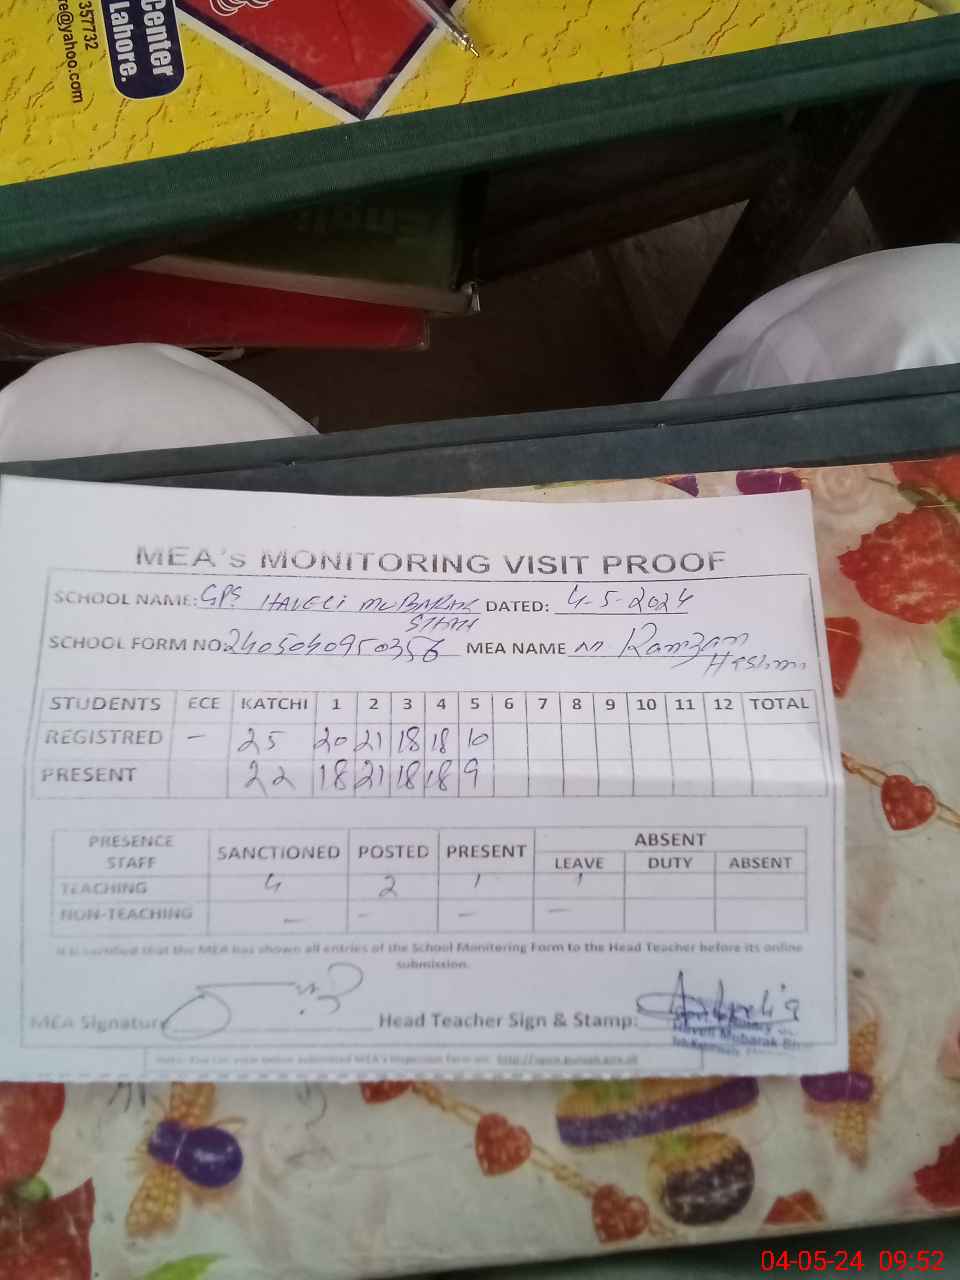 Center
Lahore.
357732
re@yahoo.com
MEA's MONITORING VISIT PROOF
SCHOOL NAME: GPS HAVELI MUBARAK SHAH DATED: 4-5-2024
SCHOOL FORM NO. MEA NAME M Ramzan Hashmi
STUDENTS ECE KATCHI 1 2 3 4 5 6 7 8 9 10 11 12 TOTAL
REGISTRED - 25 20 21 18 18 10
PRESENT 22 18 21 18 18 9
PRESENCE STAFF SANCTIONED POSTED PRESENT ABSENT
LEAVE DUTY ABSENT
TEACHING 4 2 1 1
NON-TEACHING - - - -
It is certified that the MEA has shown all entries of the School Monitoring Form to the Head Teacher before its online
submission.
MEA Signature Head Teacher Sign & Stamp:
Haveli Mubarak
04-05-24 09:52